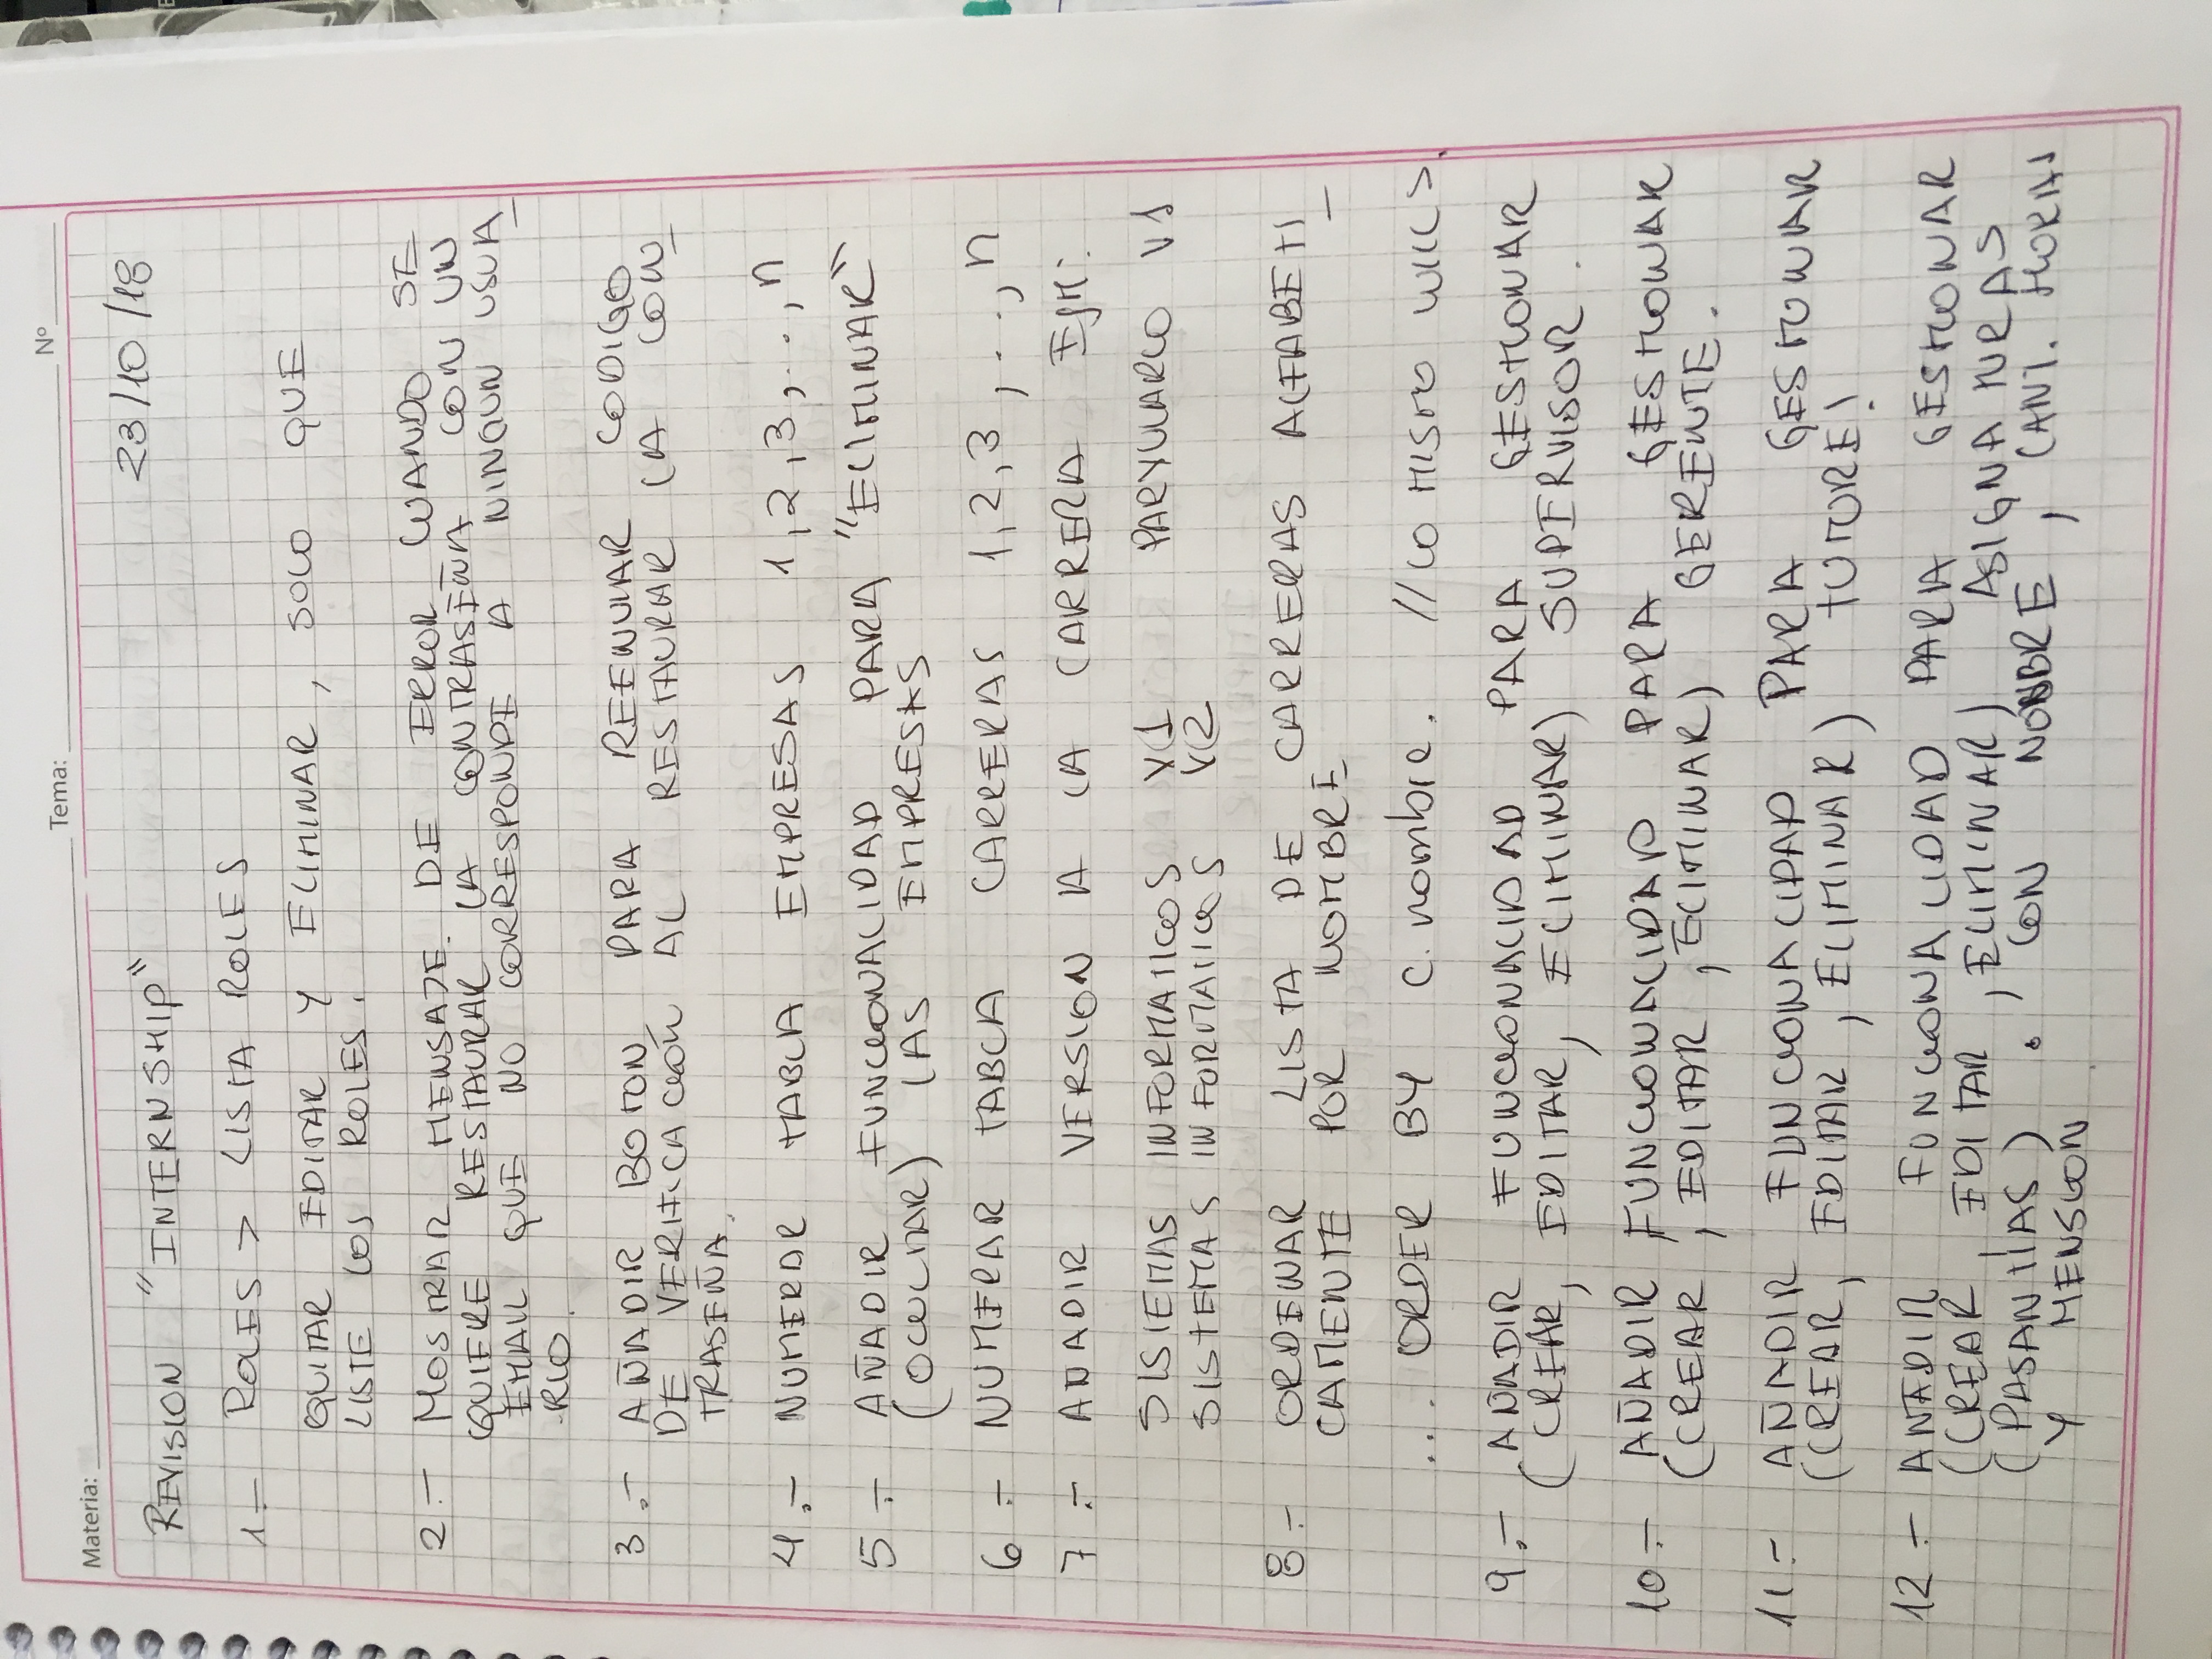 Materia: Tema: Nº
REVISION "INTERNSHIP" 23/10/18
1.- ROLES > LISTA ROLES
QUITAR EDITAR Y ELIMINAR, SOLO QUE
LISTE LOS ROLES.
2.- MOSTRAR MENSAJE DE ERROR CUANDO SE
QUIERE RESTAURAR LA CONTRASEÑA CON UN
EMAIL QUE NO CORRESPONDE A NINGUN USUA_
RIO.
3.- AÑADIR BOTON PARA REENVIAR CODIGO
DE VERIFICACIÓN AL RESTAURAR LA CON_
TRASEÑA.
4.- NUMERAR TABLA EMPRESAS 1,2,3,...,n
5.- AÑADIR FUNCIONALIDAD PARA "ELIMINAR"
(OCULTAR) LAS EMPRESAS
6.- NUMERAR TABLA CARRERAS 1,2,3,...,n
7.- AÑADIR VERSION A LA CARRERA EJM:
SISTEMAS INFORMATICOS V1 PARVULARIO V1
SISTEMAS INFORMATICOS V2
8.- ORDENAR LISTA DE CARRERAS ALFABETI_
CAMENTE POR NOMBRE
... ORDER BY c.nombre. // LO MISMO
9.- AÑADIR FUNCIONALIDAD PARA GESTIONAR
(CREAR, EDITAR, ELIMINAR) SUPERVISOR.
10.- AÑADIR FUNCIONALIDAD PARA GESTIONAR
(CREAR, EDITAR, ELIMINAR) GERENTE.
11.- AÑADIR FUNCIONALIDAD PARA GESTIONAR
(CREAR, EDITAR, ELIMINAR) TUTORE!
12.- AÑADIR FUNCIONALIDAD PARA GESTIONAR
(CREAR, EDITAR, ELIMINAR) ASIGNATURAS
(PASANTIAS). CON NOMBRE, CANT. HORAS
Y MENSION